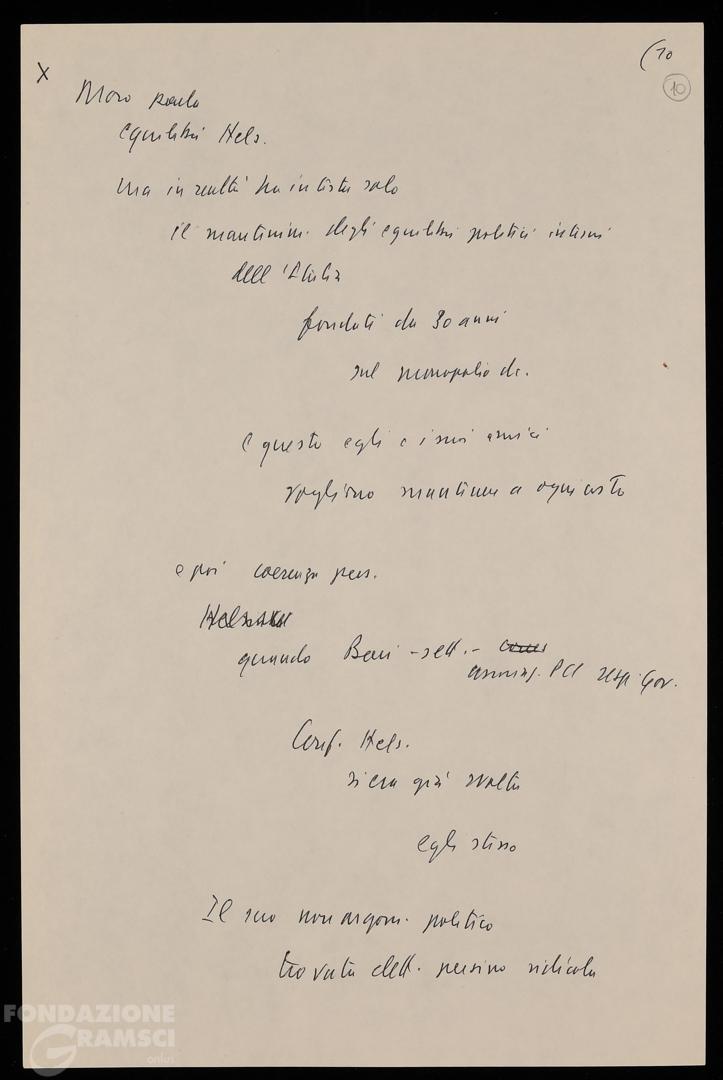 (10
10
X
Moro parla
equilibri Hels.
ma in realtà ha in vista solo
il mantenim. degli equilibri politici interni
dell'Italia
fondati da 30 anni
sul monopolio dc.
e questo egli e i suoi amici
vogliono mantenere a ogni costo
e poi coerenza pers.
quando Bari - sett. -
assunz. PCI resp. Gov.
Conf. Hels.
si era già svolta
egli stesso
Il suo non argom. politico
trovata elett. persino ridicola
FONDAZIONE
GRAMSCI
onlus